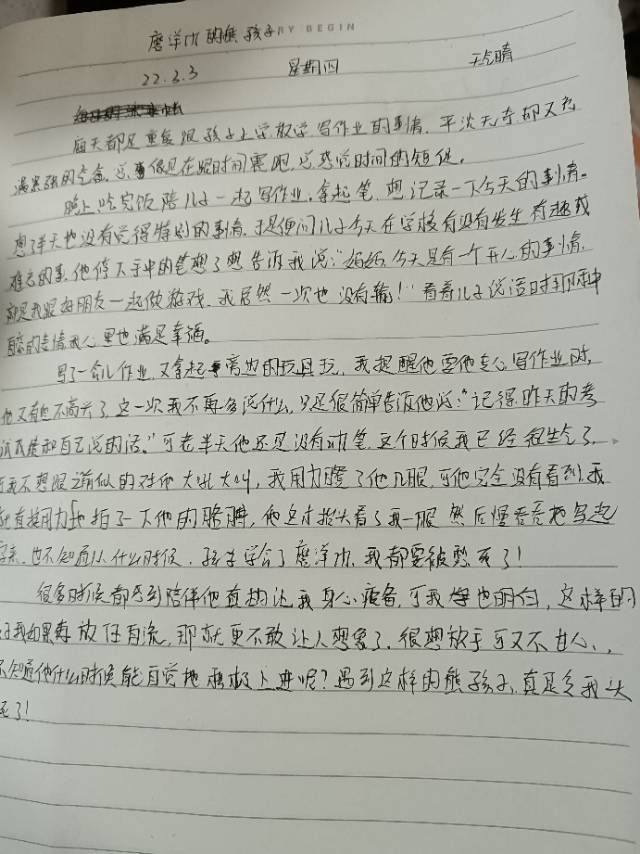 磨洋工的熊孩子RY BEGIN
22.3.3 星期四 天气晴
每天都是重复跟孩子上学放学写作业的事情,平淡无奇却又充
满紧张的气氛,总像是在跟时间赛跑,总感觉时间的短促。
晚上吃完饭陪儿子一起写作业,拿起笔,想记录一下今天的事情。
想了半天也没有觉得特别的事情,于是便问儿子今天在学校有没有发生有趣或
难忘的事,他停下手中的笔想了想告诉我说:“妈妈,今天是有一个开心的事情,
就是我跟好朋友一起做游戏,我居然一次也没有输!”看着儿子说话时那种
的表情我心里也满是幸福。
写了一会儿作业,又拿起旁边的玩具玩,我提醒他要他专心写作业时,
他又有些不高兴了,这一次我不再多说什么,只是很简单告诉他说:“记得昨天的考
试成绩和自己说的话。”可老半天他还是没有动笔,这个时候我已经很生气了,
可我不想跟之前似的对他大吼大叫,我用力瞪了他几眼,可他完全没有看到,我
就直接用力地拍了一下他的胳膊,他这才抬头看了我一眼,然后慢吞吞地写起
字来,也不知道从什么时候,孩子学会了磨洋工,我都要被憋死了!
很多时候都感到陪伴他真的让我身心疲惫,可我也明白,这样的
孩子我如果再放任自流,那就更不敢让人想象了,很想放手可又不甘心,,
不知道他什么时候能自觉地积极上进呢?遇到这样的熊孩子,真是令我头
疼死了!